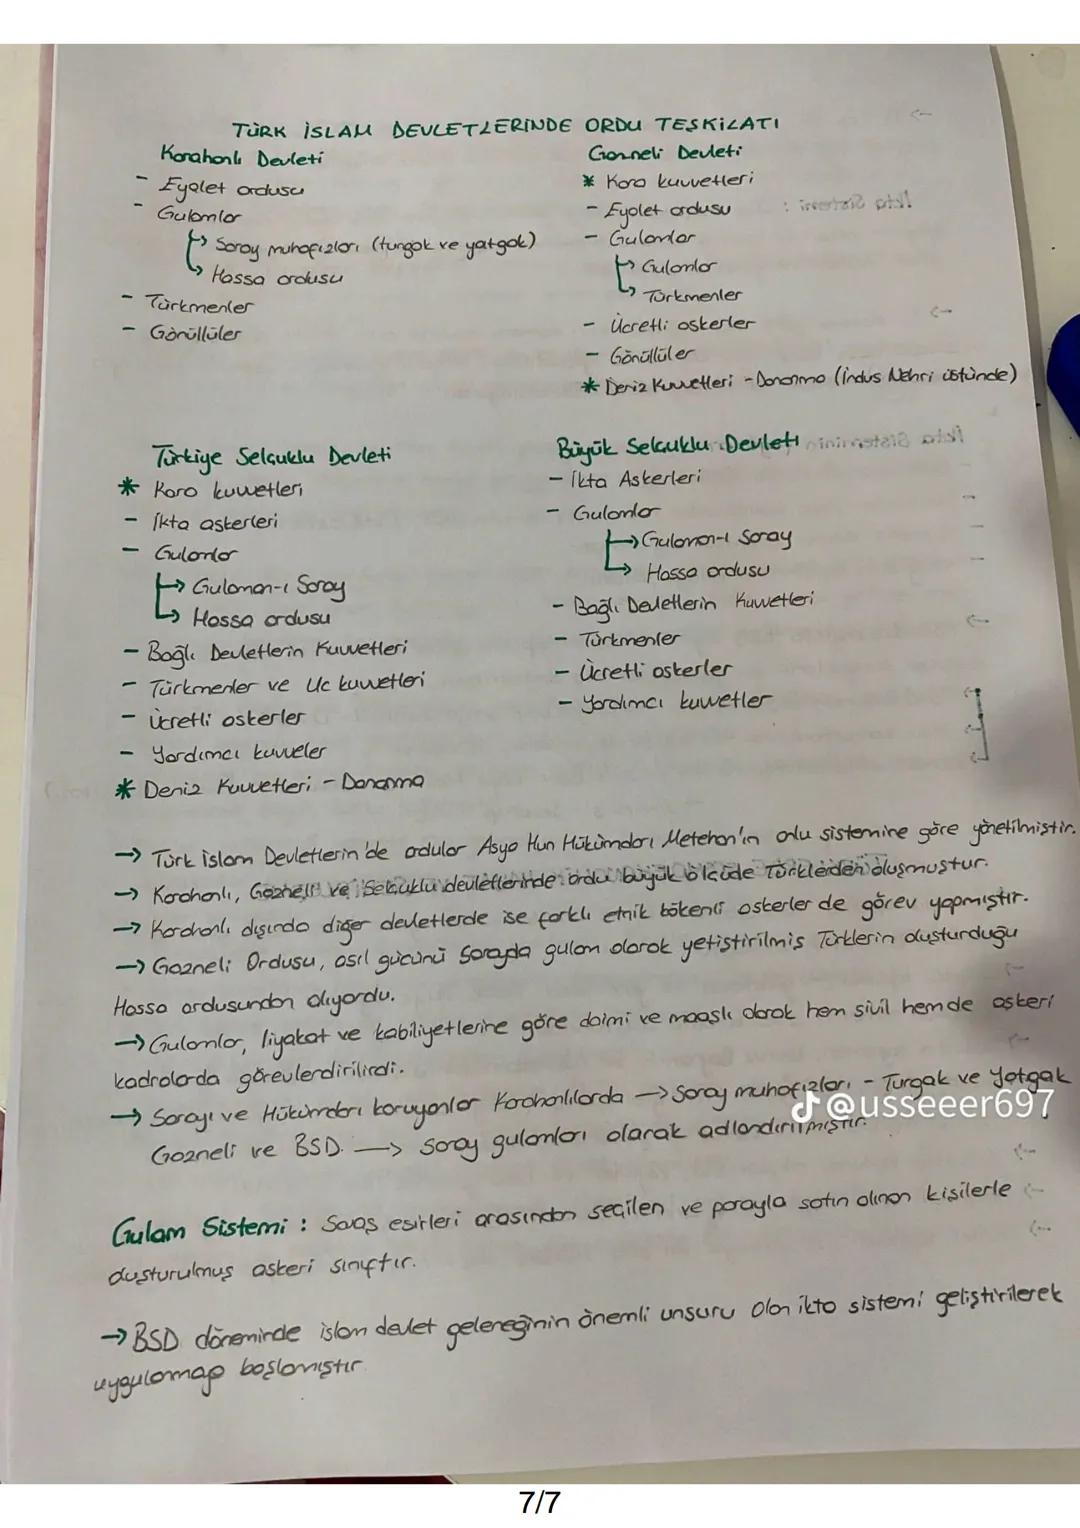 TÜRK İSLAM DEVLETLERİNDE ORDU TEŞKİLATI
Karahanlı Devleti
- Eyalet ordusu
- Gulamlar
Saray muhafızları (turgak ve yatgak)
Hassa ordusu
- Türkmenler
- Gönüllüler
Gazneli Devleti
* Kara kuvvetleri
- Eyalet ordusu
- Gulamlar
Gulamlar
Türkmenler
- Ücretli askerler
- Gönüllüler
* Deniz Kuvvetleri - Donanma (İndus Nehri üstünde)
Türkiye Selçuklu Devleti
* Kara kuvvetleri
- İkta askerleri
- Gulamlar
→ Gulaman-ı Saray
→ Hassa ordusu
- Bağlı Devletlerin Kuvvetleri
- Türkmenler ve Uc kuvvetleri
- Ücretli askerler
- Yardımcı kuvveler
* Deniz Kuvvetleri - Donanma
Büyük Selçuklu Devleti
- İkta Askerleri
- Gulamlar
→ Gulaman-ı Saray
→ Hassa ordusu
- Bağlı Devletlerin Kuvvetleri
- Türkmenler
- Ücretli askerler
- Yardımcı kuvvetler
→ Türk İslam Devletlerin'de ordular Asya Hun Hükümdarı Metehan'ın onlu sistemine göre yönetilmiştir.
→ Karahanlı, Gazneli ve Selçuklu devletlerinde ordu büyük ölçüde Türklerden oluşmuştur.
→ Karahanlı dışında diğer devletlerde ise farklı etnik kökenli askerler de görev yapmıştır.
→ Gazneli Ordusu, asıl gücünü Sarayda gulam olarak yetiştirilmiş Türklerin oluşturduğu
Hassa ordusundan alıyordu.
→ Gulamlar, liyakat ve kabiliyetlerine göre daimi ve maaşlı olarak hem sivil hem de askeri
kadrolarda görevlendirilirdi.
→ Sarayı ve Hükümdarı koruyanlar Karahanlılarda → Saray muhafızları - Turgak ve Yatgak
@usseeer697
Gazneli ve BSD. → saray gulamları olarak adlandırılmıştır.
Gulam Sistemi : Savaş esirleri arasından seçilen ve parayla satın alınan kişilerle
oluşturulmuş askeri sınıftır.
→ BSD döneminde islam devlet geleneğinin önemli unsuru olan ikta sistemi geliştirilerek
başlamıştır
7/7